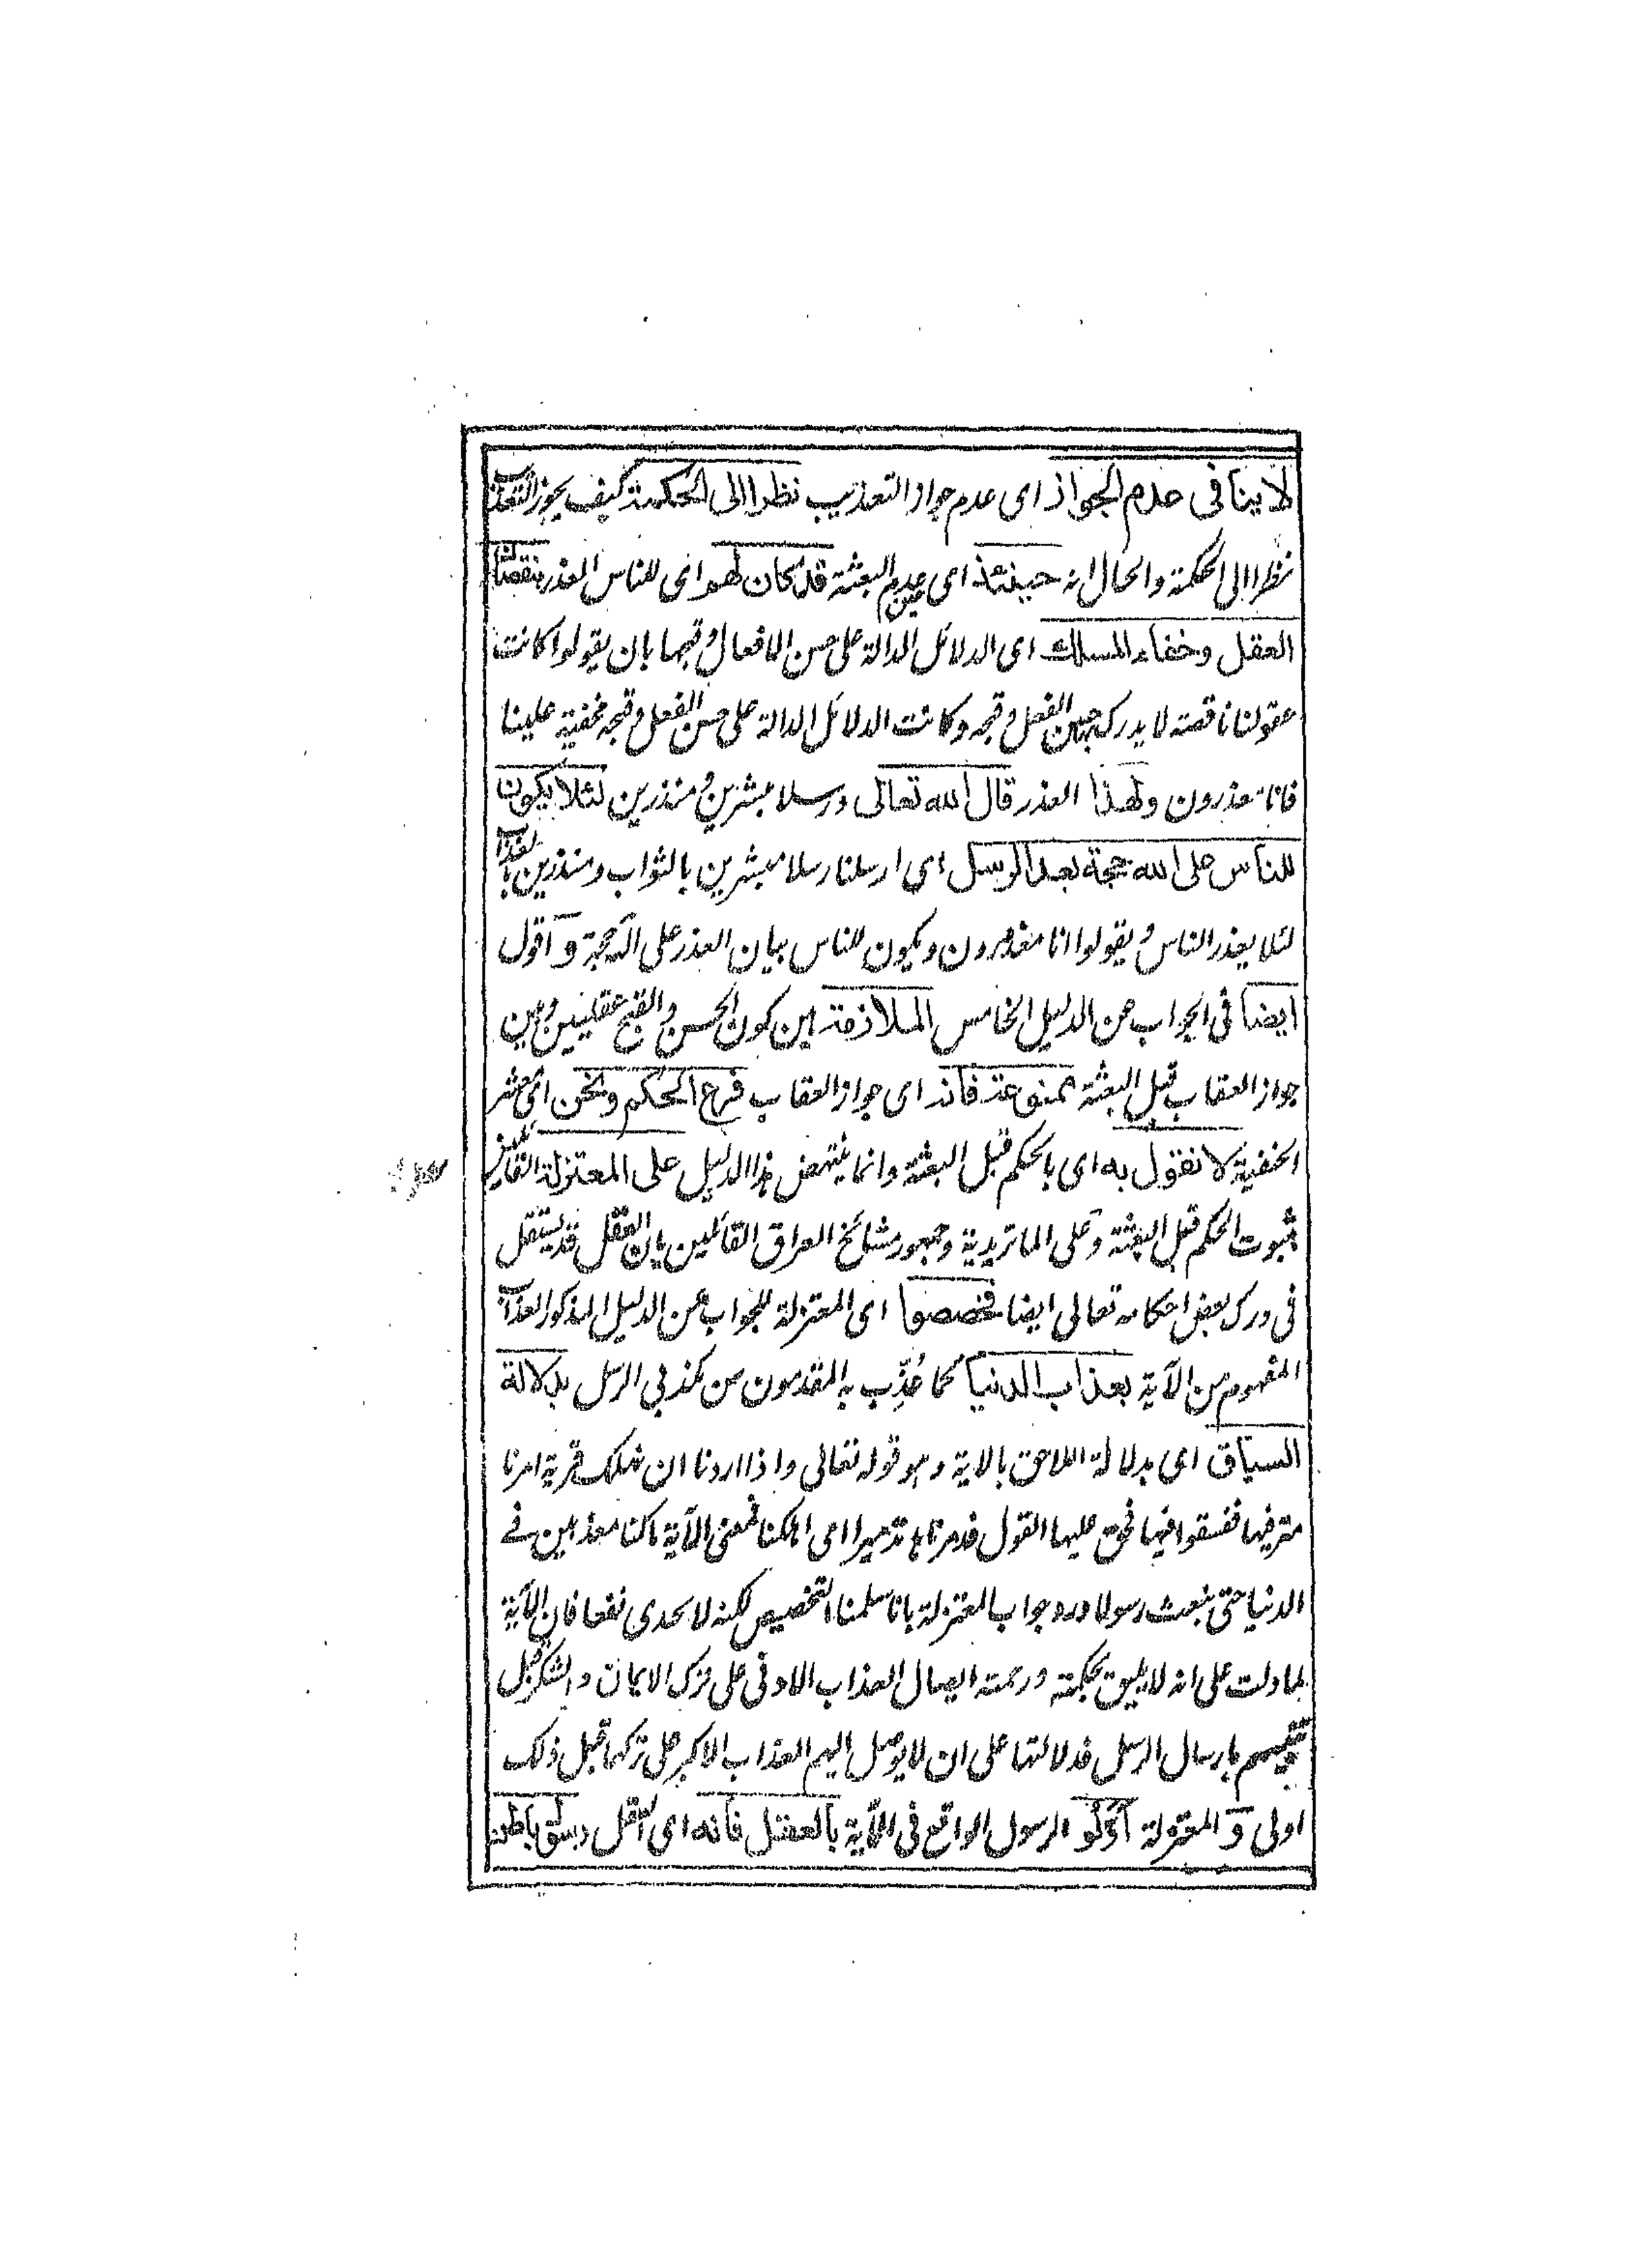 لا ينافى عدم الجواز اى عدم جواز التعذيب نظرا الى الحكمة كيف يجوز التعذيب
نظرا الى الحكمة والحال انه حينئذ اى حين عدم البعثة قد كان لهم اى للناس العذر بنقصان
العقل وخفاء المسلك اى الدلائل الدالة على حسن الافعال وقبحها بان يقولوا كانت
عقولنا ناقصة لا يدرك بها حسن الفعل وقبحه وكانت الدلائل الدالة على حسن الفعل وقبحه مخفية علينا
فانا معذرون ولهذا العذر قال الله تعالى ورسلا مبشرين ومنذرين لئلا يكون
للناس على الله حجة بعد الرسل اى ارسلنا رسلا مبشرين بالثواب ومنذرين بالعذاب
لئلا يعذر الناس ويقولوا انا معذورون ويكون للناس ببيان العذر على الله حجة و اقول
ايضا فى الجواب عن الدليل الخامس الملازمة بين كون الحسن والقبح عقليين وبين
جواز العقاب قبل البعثة ممنوعة فانه اى جواز العقاب فرع الحكم ونحن اى معشر
الحنفية لا نقول به اى بالحكم قبل البعثة وانما ينتهض هذا الدليل على المعتزلة القائلين
بثبوت الحكم قبل البعثة وعلى الماتريدية وجمهور مشائخ العراق القائلين بان العقل قد يستقل
فى درك بعض احكامه تعالى ايضا فخصصوا اى المعتزلة للجواب عن الدليل المذكور العذاب
المفهوم من الآية بعذاب الدنيا كما عُذِّب به المقدمون من مكذبى الرسل بدلالة
السياق اى بدلالة اللاحق بالاية وهو قوله تعالى واذا اردنا ان نهلك قرية امرنا
مترفيها ففسقوا فيها فحق عليها القول فدمرناها تدميرا اى اهلكنا فمعنى الآية ماكنا معذبين فے
الدنيا حتى نبعث رسولا ورد جواب المعتزلة بانا سلمنا التخصيص لكنه لا يجدى نفعا فان الآية
لما دلت على انه لا يليق بحكمته ورحمته ايصال العذاب الادنى على ترك الايمان والشكر قبل
تنبيههم بارسال الرسل فدلالتها على ان لا يوصل اليهم العذاب الاكبر على تركهما قبل ذلك
اولى و المعتزلة اوّلو الرسول الواقع فى الآية بالعقل فانه اى العقل رسول باطن